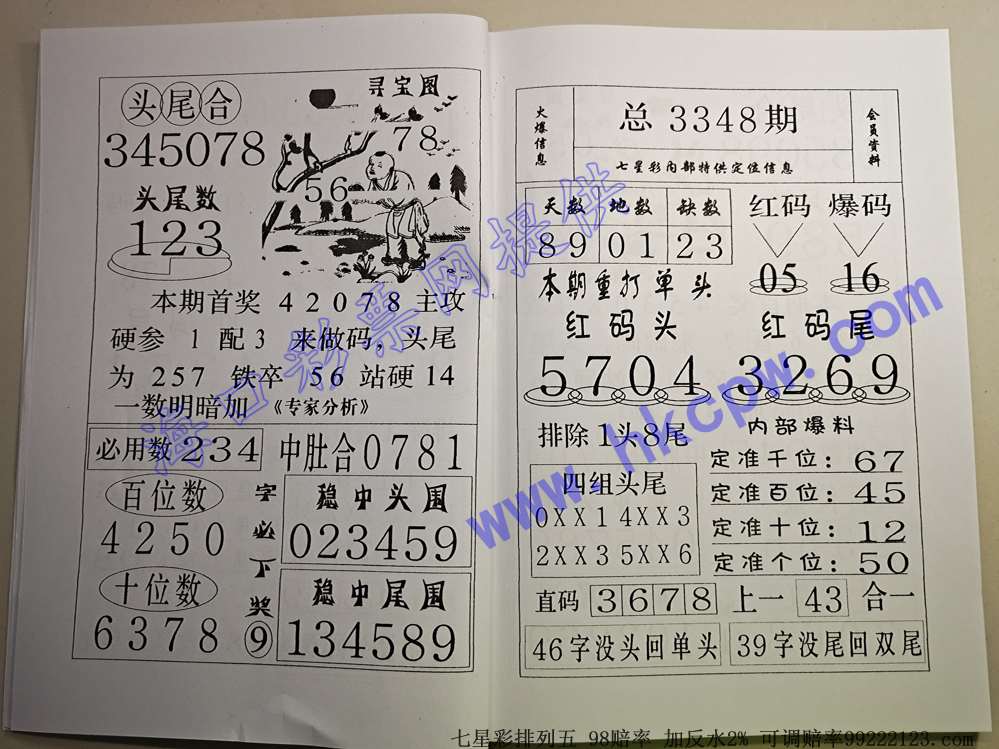 头尾合
寻宝图
345078
78
头尾数
56
123
本期首奖 42078 主攻
硬参 1 配3 来做码，头尾
为 257 铁卒 56 站硬14
一数明暗加 《专家分析》
必用数 234
中肚合0781
百位数
4250
十位数
6378
字必下奖
9
稳中头围
023459
稳中尾围
134589
火爆信息
总 3348期
七星彩内部特供定位信息
会员资料
天数 地数 缺数
89 01 23
红码 爆码
05 16
本期重打单头
红码头 红码尾
5704 3269
排除1头8尾
内部爆料
四组头尾
0XX1 4XX3
2XX3 5XX6
定准千位：67
定准百位：45
定准十位：12
定准个位：50
直码 3678 上一 43 合一
46字没头回单头 39字没尾回双尾
海口彩票网提供
www.hkcpw.com
七星彩排列五 98赔率 加反水2% 可调赔率99222123.com